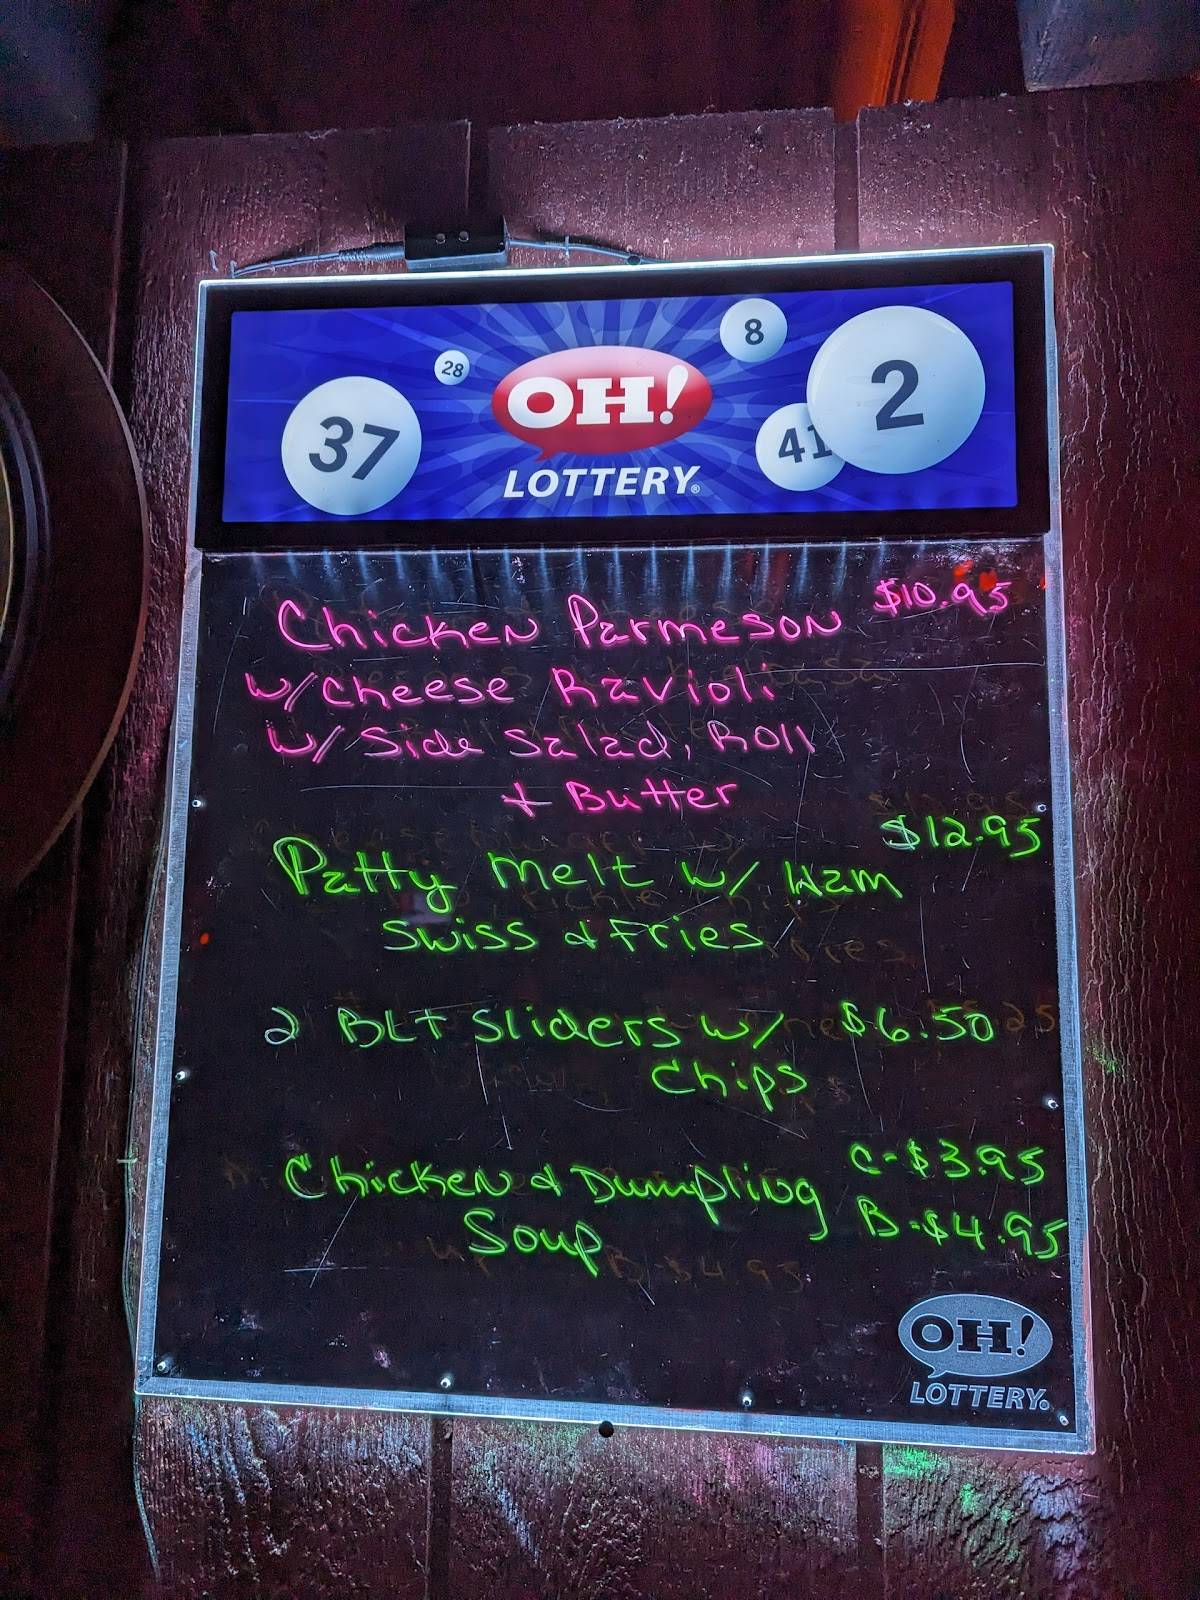 37
28
OH!
LOTTERY®
8
41
2
Chicken Parmeson $10.95
w/ Cheese Ravioli
w/ Side Salad, Roll
+ Butter
Patty Melt w/ Ham $12.95
Swiss & Fries
2 BLT Sliders w/ $6.50
Chips
Chicken & Dumpling C-$3.95
Soup B-$4.95
OH!
LOTTERY®